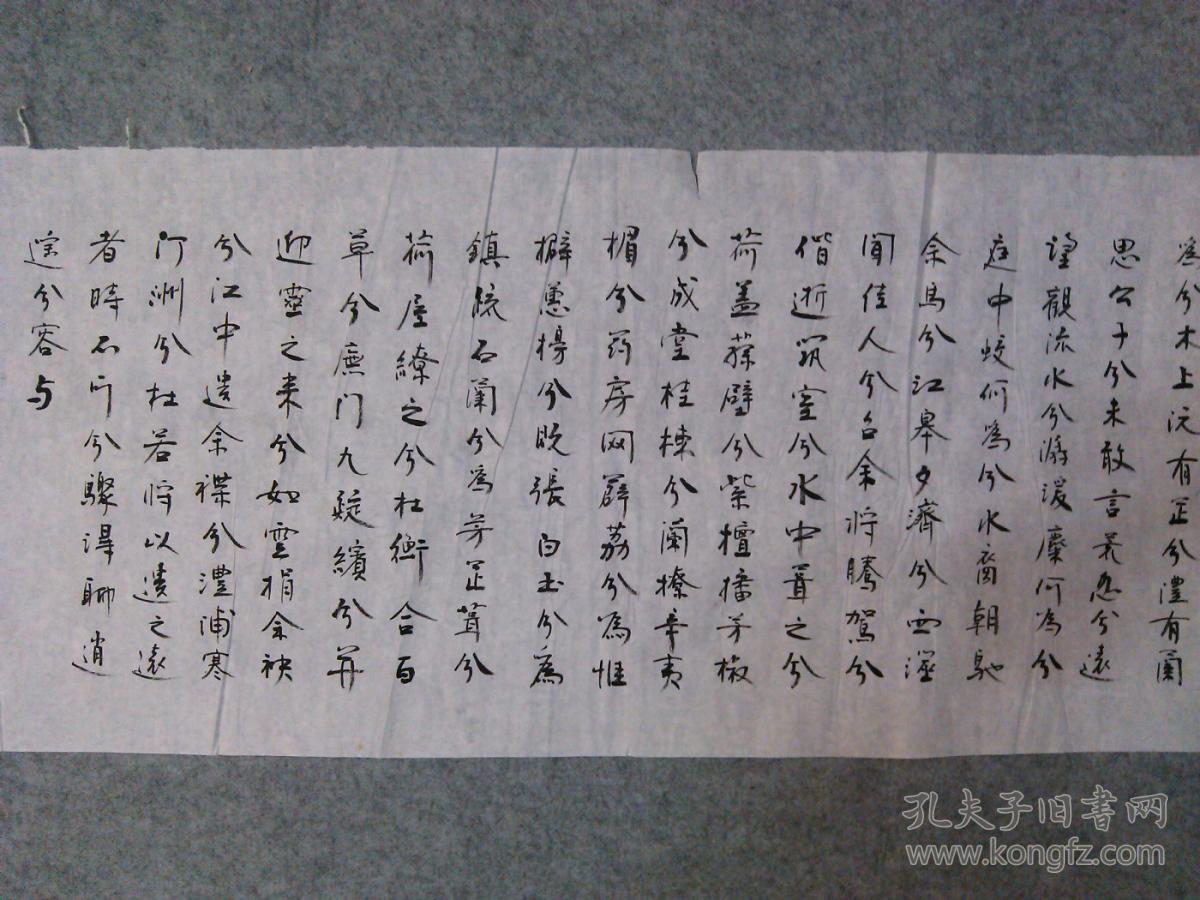 為兮木上沅有芷兮澧有蘭
思公子兮未敢言荒忽兮遠
望觀流水兮潺湲麋何為兮
庭中蛟何為兮水裔朝馳
余馬兮江皋夕濟兮西澨
聞佳人兮召余將騰駕兮
偕逝筑室兮水中葺之兮
荷蓋蓀壁兮紫壇播芳椒
兮成堂桂棟兮蘭橑辛夷
楣兮药房网薜荔兮為帷
擗蕙櫋兮既張白玉兮為
鎮疏石蘭兮為芳芷葺兮
荷屋繚之兮杜衡合百
草兮廡门九嶷繽兮并
迎靈之来兮如雲捐余袂
兮江中遺余褋兮澧浦搴
汀洲兮杜若将以遺之遠
者時不可兮驟得聊逍
遥兮容与
孔夫子旧书网
www.kongfz.com